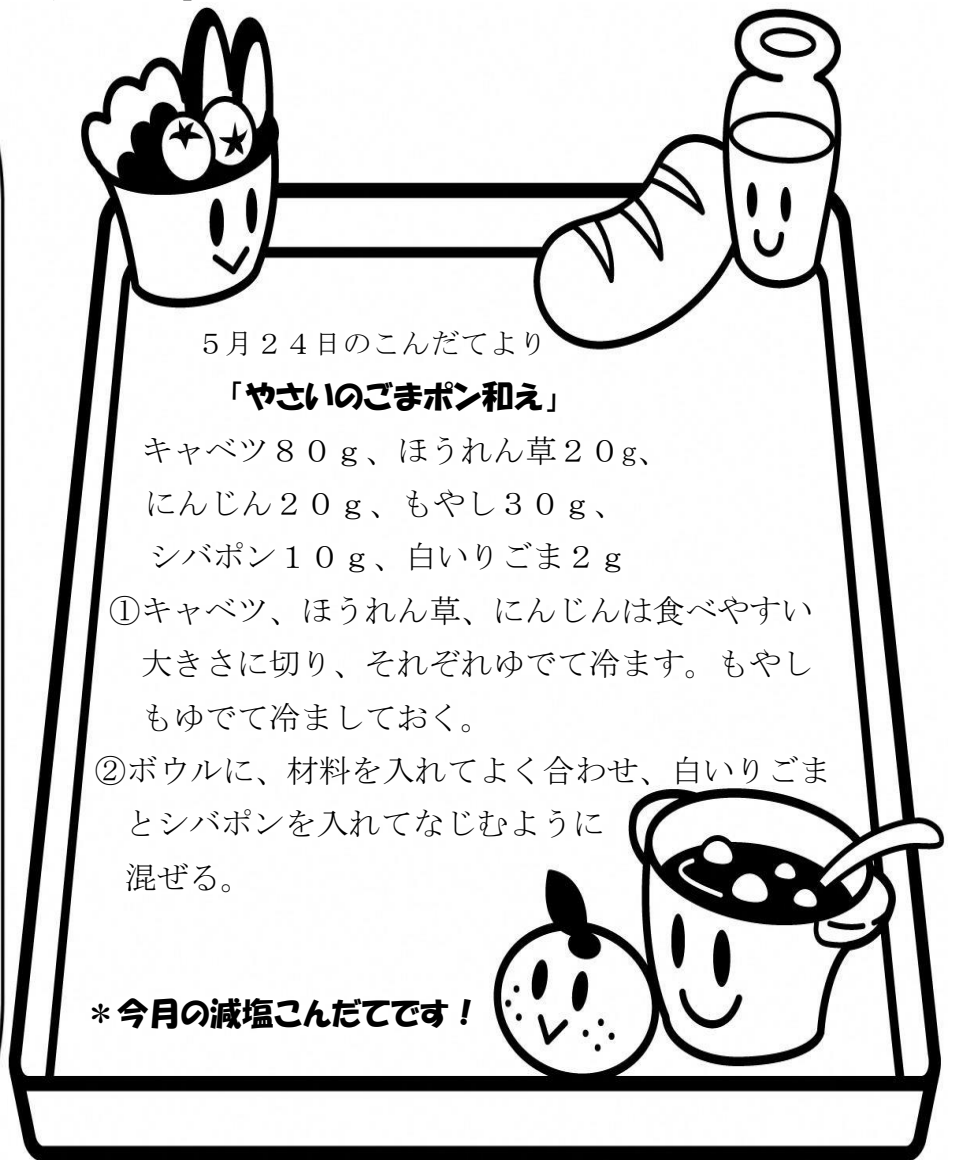 5月24日のこんだてより
「やさいのごまポン和え」
キャベツ80g、ほうれん草20g、
にんじん20g、もやし30g、
シバポン10g、白いりごま2g
①キャベツ、ほうれん草、にんじんは食べやすい
大きさに切り、それぞれゆでて冷ます。もやし
もゆでて冷ましておく。
②ボウルに、材料を入れてよく合わせ、白いりごま
とシバポンを入れてなじむように
混ぜる。
*今月の減塩こんだてです!